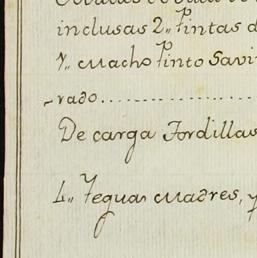 inclusas 2,, Pintas
7,, Macho Pinto Savi
-rado..............
De carga Tordillas
4,, Yeguas Madres, y